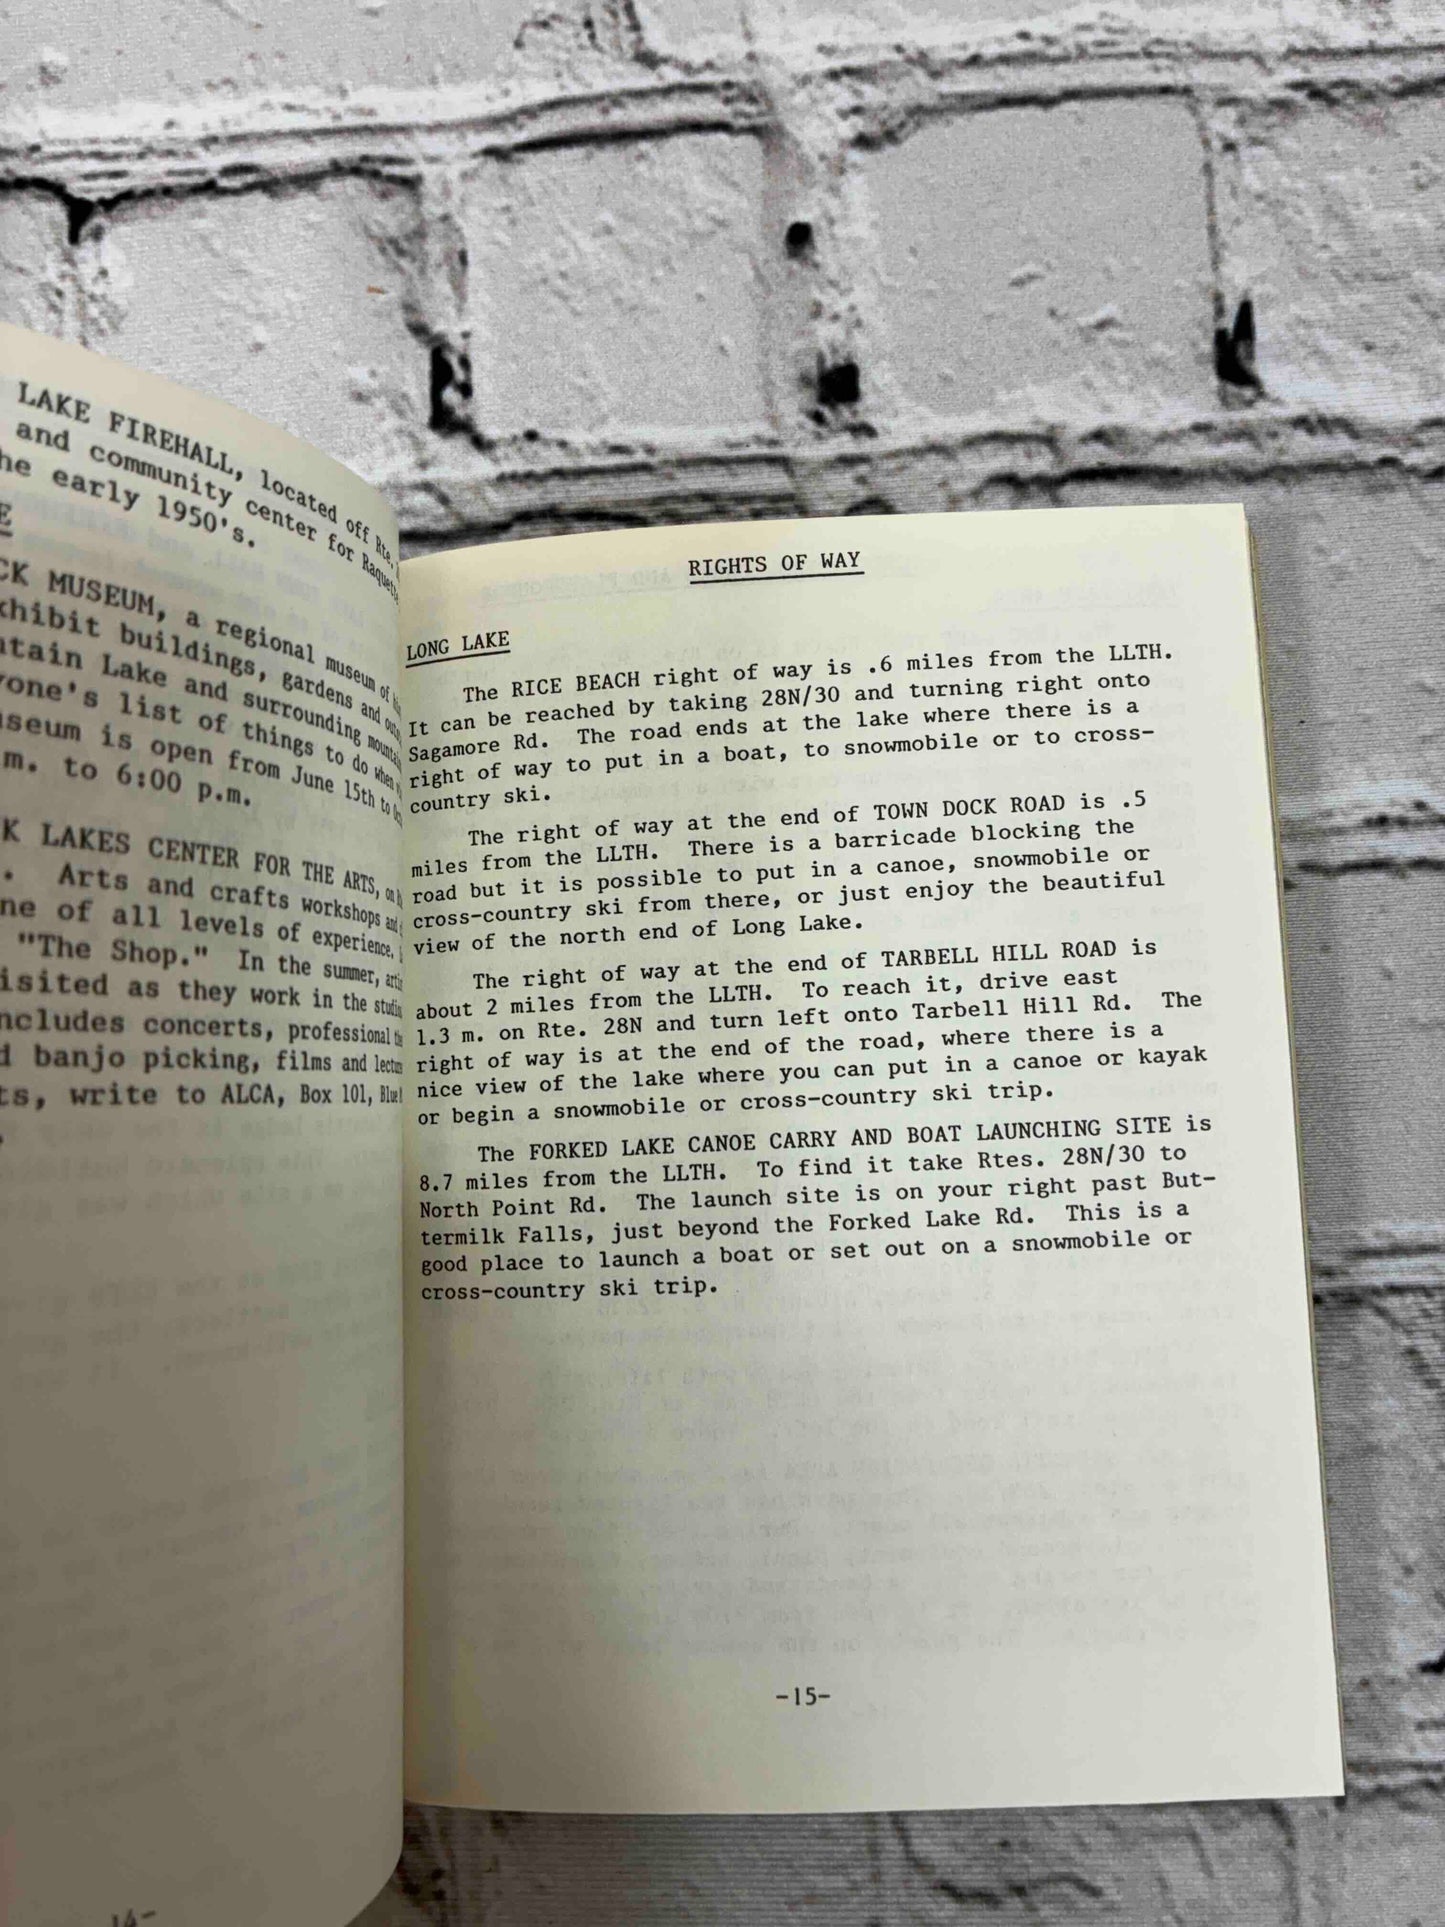 LAKE FIREHALL, located off Rte.
and community center for Raquette
he early 1950's.
E
CK MUSEUM, a regional museum of
xhibit buildings, gardens and
ntain Lake and surrounding
yone's list of things to do when
useum is open from June 15th to
m. to 6:00 p.m.
K LAKES CENTER FOR THE ARTS, on
. Arts and crafts workshops and
ne of all levels of experience,
"The Shop." In the summer,
isited as they work in the
ncludes concerts, professional
d banjo picking, films and
ts, write to ALCA, Box 101, Blue
14-
RIGHTS OF WAY
LONG LAKE
The RICE BEACH right of way is .6 miles from the LLTH.
It can be reached by taking 28N/30 and turning right onto
Sagamore Rd. The road ends at the lake where there is a
right of way to put in a boat, to snowmobile or to cross-
country ski.
The right of way at the end of TOWN DOCK ROAD is .5
miles from the LLTH. There is a barricade blocking the
road but it is possible to put in a canoe, snowmobile or
cross-country ski from there, or just enjoy the beautiful
view of the north end of Long Lake.
The right of way at the end of TARBELL HILL ROAD is
about 2 miles from the LLTH. To reach it, drive east
1.3 m. on Rte. 28N and turn left onto Tarbell Hill Rd. The
right of way is at the end of the road, where there is a
nice view of the lake where you can put in a canoe or kayak
or begin a snowmobile or cross-country ski trip.
The FORKED LAKE CANOE CARRY AND BOAT LAUNCHING SITE is
8.7 miles from the LLTH. To find it take Rtes. 28N/30 to
North Point Rd. The launch site is on your right past But-
termilk Falls, just beyond the Forked Lake Rd. This is a
good place to launch a boat or set out on a snowmobile or
cross-country ski trip.
-15-